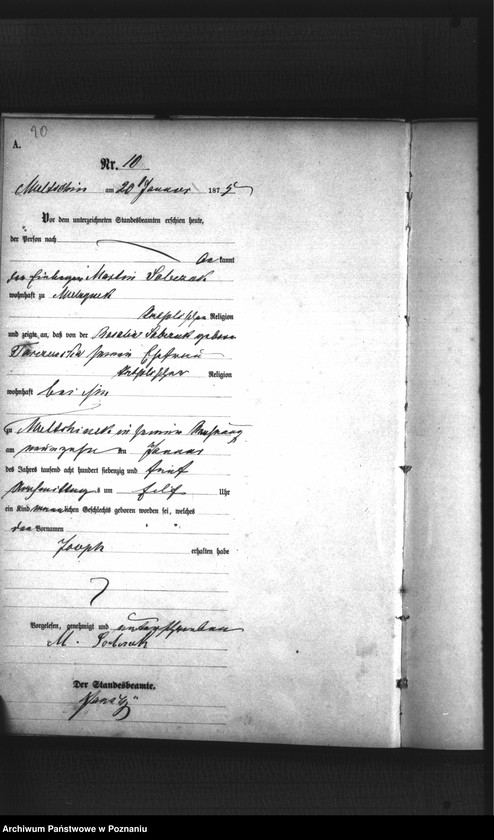 20
A.
Nr. 10
am 20 Januar 1875
Vor dem unterzeichneten Standesbeamten erschien heute,
der Person nach
kannt
der Martin
wohnhaft zu
katholischer Religion
und zeigte an, daß von der Rosalia geborene
seiner Ehefrau
katholischer Religion
wohnhaft bei ihm
zu in seiner Wohnung
am neunzehn ten Januar
des Jahres tausend acht hundert siebenzig und fünf
Vormittags um elf Uhr
ein Kind männlichen Geschlechts geboren worden sei, welches
den Vornamen
Joseph erhalten habe
Vorgelesen, genehmigt und unterschrieben
M.
Der Standesbeamte.
Archiwum Państwowe w Poznaniu